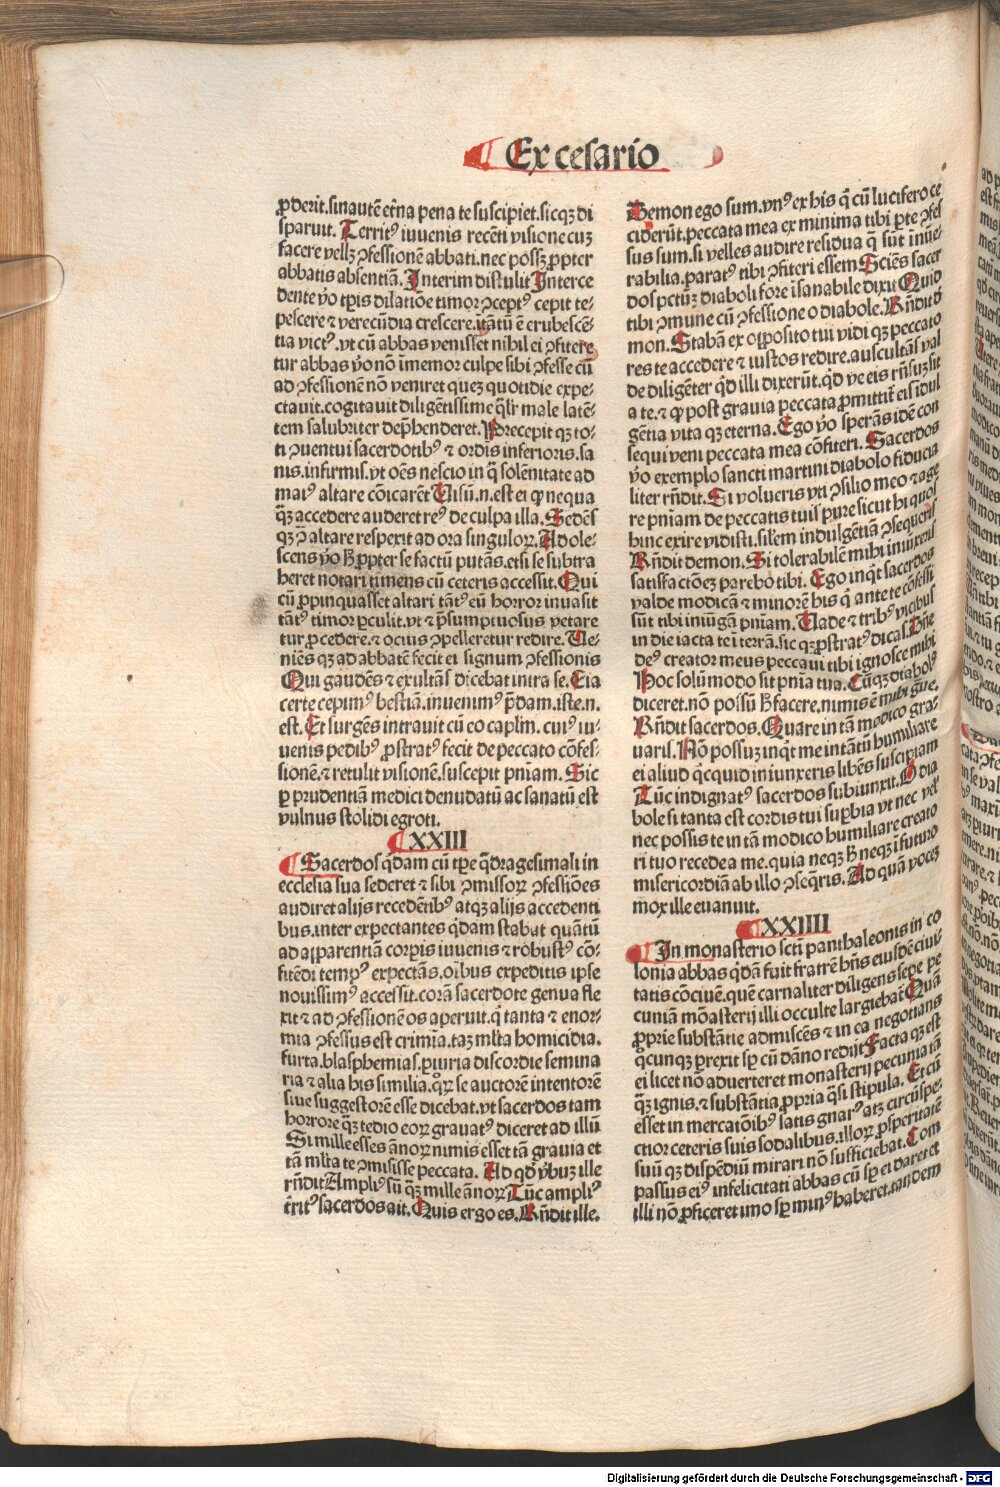 Ex cesario
ꝓderit.sinautē eṫna pena te suscipiet.sicqꝫ di
sparuit. Territꝰ iuuenis recēti visione cuꝫ
facere vellꝫ ꝯfessionē abbati.nec possꝫ ꝓpter
abbatis absentiā. Interim distulit Interce
dente v̊o tꝑis dilatiōe timor ꝯceptꝰ cepit te⸗
pescere ⁊ verecūdia crescere.itātū ē erubescē⸗
tia victꝰ.vt cū abbas venisset nihil ei ꝯfitere
tur abbas v̊o nō īmemor culpe sibi ꝯfesse cū
ad ꝯfessionē nō veniret queꝫ quotidie expe⸗
ctauit.cogitauit diligētissime qͥlr̃ male latē⸗
tem salubriter dep̱henderet. Precepit qꝫ to⸗
ti ꝯuentui sacerdotibꝰ ⁊ ordis inferioris.sa
nis.infirmis.vt oēs nescio in q̄ sōlēnitate ad
maiꝰ altare cōicarēt Uisū.n.est ei ꝙ nequa
q̄ꝫ accedere auderet reꝰ de culpa illa. Sedēs
qꝫ ꝓ̄ altare respexit ad ora singuloꝝ. Adole⸗
scens v̊o ħ ꝓpter se factū putās.etsi se subtra
heret notari timens cū ceteris accessit. Qui
cū ꝓpinquasset altari tātꝰ eū horror inuasit
tātꝰ timor ꝑculit.vt ⁊ p̄sumptuosus vetare
tur ꝓcedere.⁊ ocius ꝯpelleretur redire. Ue⸗
niēs qꝫ ad abbatē fecit ei signum ꝯfessionis
Qui gaudēs ⁊ exultās dicebat intra se. Eia
certe cepimꝰ bestiā.inuenimꝰ p̄dam.iste.n.
est. Et surgēs intrauit cū eo caplm̄. cuiꝰ iu⸗
uenis pedibꝰ ꝓstratꝰ fecit de peccato cōfes⸗
sionē.⁊ retulit visionē.suscepit pn̄iam. Sic
ꝑ prudentiā medici denudatū ac sanatū est
vulnus stolidi egroti.
XXIII
Sacerdos qͥdam cū tꝑe qͣdragesimali in
ecclesia sua sederet ⁊ sibi ꝯmissoꝝ ꝯfessiōes
audiret alijs recedētibꝰ atqꝫ alijs accedenti
bus.inter expectantes qͥdam stabat quātū
ad apparentiā corꝑis iuuenis ⁊ robustꝰ cō⸗
fitēdi tempꝰ expectās.oībus expeditis ipse
nouissimꝰ accessit.corā sacerdote genua fle
xit ⁊ ad ꝯfessionē os aperuit.qͥ tanta ⁊ enor⸗
mia ꝯfessus est crimīa.taꝫ ml̄ta homicidia.
furta.blasphemias.ꝑiuria discordie semina
ria ⁊ alia his similia.qͦꝝ se auctorē intentorē
siue suggestorē esse dicebat.vt sacerdos tam
horrore q̄ꝫ tedio eoꝝ grauatꝰ diceret ad illū
Si mille esses ānoꝝ nimis esset tā grauia et
tā ml̄ta te ꝯmisisse peccata. Ad qd̓ v̓buꝫ ille
rn̄dit Ampliꝰ sū q̄ꝫ mille ānoꝝ Tūc ampliꝰ
ṫritꝰ sacerdos ait. Quis ergo es. Rn̄dit ille.
Demon ego sum.vnꝰ ex his qͥ cū lucifero ce
ciderūt.peccata mea ex minima tibi ꝑte ꝯfes
sus sum.si velles audire residua q̄ sūt inūe⸗
rabilia.paratꝰ tibi ꝯfiteri essem Sciēs sacer
dos pctūꝫ diaboli fore īsanabile dixit Quid
tibi ꝯmune cū ꝯfessione o diabole. Rn̄dit d̓
mon. Stabā ex opposito tui vidi qꝫ peccato
res te accedere ⁊ iustos redire.auscultās val
de diligēter qd̓ illi dixerūt.qd̓ ve eis rn̄suꝫ sit
a te.⁊ ꝙ post grauia peccata ꝓmittit̄ eis īdul
gētia vita qꝫ eterna. Ego v̊o sperās idē con
sequi veni peccata mea cōfiteri. Sacerdos
v̊o exemplo sancti martini diabolo fiducia
liter rn̄dit. Si volueris vti ꝯsilio meo ⁊ age
re pn̄iam de peccatis tuis pure sicut hi quos
hinc exire vidisti.silem indulgētiā ꝯsequeris
Rn̄dit demon. Si tolerabilē mihi iniūxeris
satisfactōeꝫ parebo tibi. Ego inqͥt sacerdos
valde modicā ⁊ minorē his qͥ ante te cōfessi
sūt tibi iniūgā pn̄iam. Uade ⁊ tribꝰ vicibus
in die iacta te ī terrā.sic qꝫ ꝓstratꝰ dicas. Dn̄e
deꝰ creator meus peccaui tibi ignosce mihi
Hoc solūmodo sit pn̄ia tua. Cūqꝫ diabolꝰ
diceret.nō possū ħ facere.nimis ē mihi gͣue.
Rn̄dit sacerdos. Quare in tā modico gra⸗
uaris. Nō possuꝫ inqͥt me intātū humiliare
ei aliud qͥcquid iniunxeris libēs suscipiam
Tūc indignatꝰ sacerdos subiunxit. O dia
bole si tanta est cordis tui suꝑbia vt nec vel̓
nec possis te in tā modico humiliare creato
ri tuo recede a me.quia neqꝫ ħ neqꝫ ī futuro
misericordiā ab illo ꝯseqͣris. Ad quā vocez
mox ille euanuit.
XXIIII
In monasterio scti panthaleonis in co
lonia abbas qͥdā fuit fratrē hn̄s eiusdē ciui⸗
tatis cōciuē.quē carnaliter diligens sepe pe
cuniā mōasterij illi occulte largiebat̄ Quā
ꝓprie substātie admiscēs ⁊ in ea negotians
qͦcunqꝫ ꝑrexit sꝑ cū dāno redijt Facta qꝫ est
ei licet nō aduerteret monasterij pecunia tā
q̄ꝫ ignis.⁊ substātia ꝓpria qͣsi stipula. Et cū
esset in mercatōibꝰ satis gnarꝰ atqꝫ circūspe⸗
ctior ceteris suis sodalibus.illoꝝ ꝓsperitatē
suū qꝫ dispēdiū mirari nō sufficiebat. Com
passus eiꝰ infelicitati abbas cū sꝑ ei daret et
illi nō ꝓficeret imo sꝑ minꝰ haberet.tandem
Digitalisierung gefördert durch die Deutsche Forschungsgemeinschaft - DFG